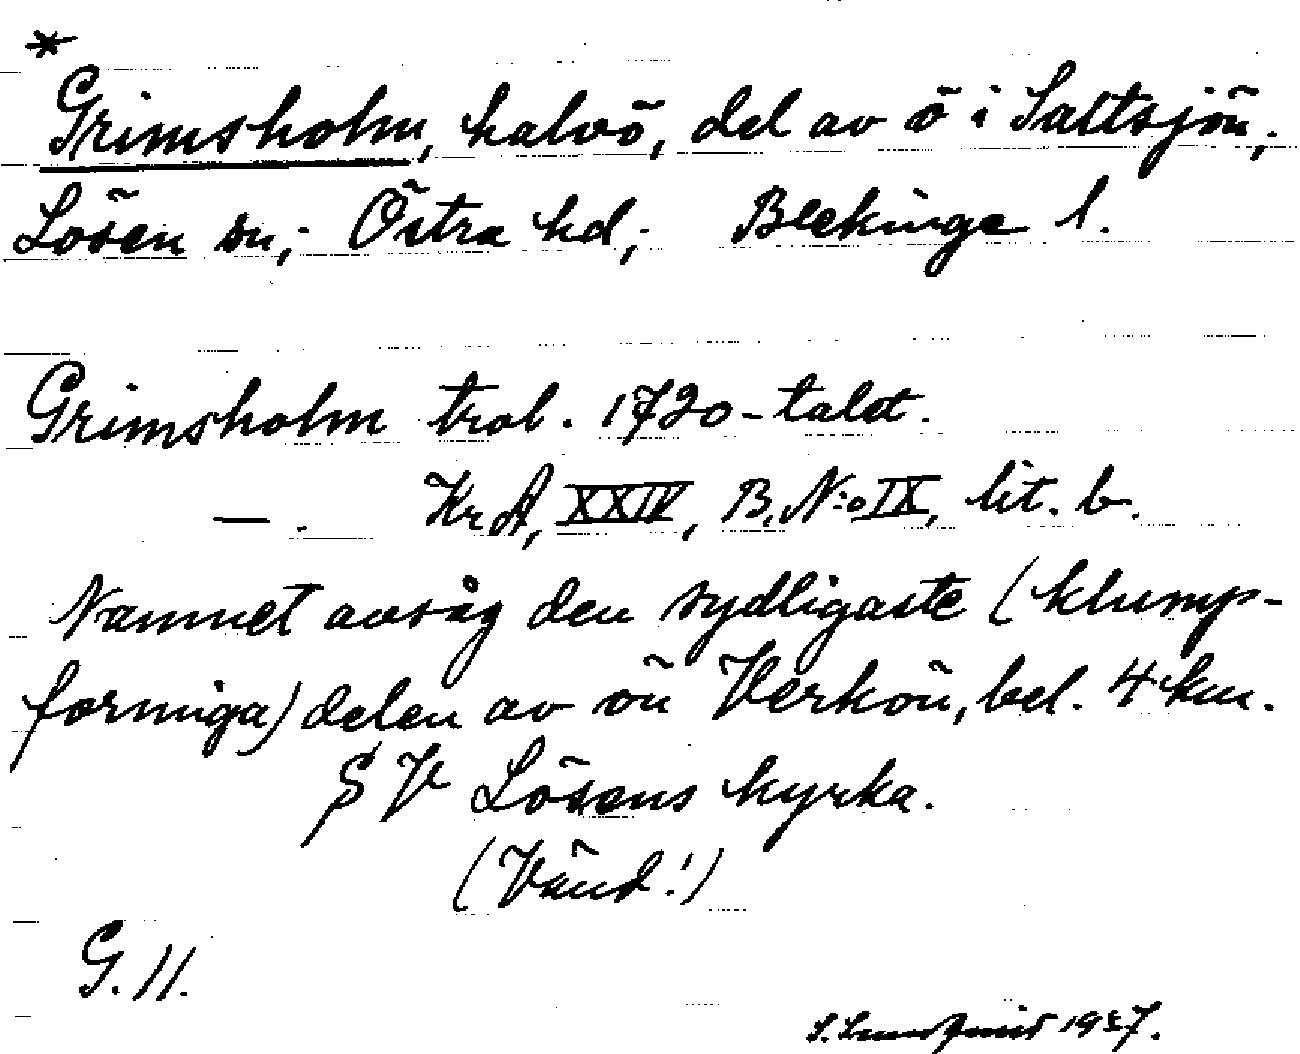 *
Grimsholm, halvö, del av ö i Saltsjön,;
Lösen sn,; Östra hd,; Blekinge l.
Grimsholm trol. 1720-talet.
— . KrA, XXIV, B, N:o IX, lit. b.
Namnet avsåg den sydligaste (klump-
formiga) delen av ön Verkön, bel. 4 km.
SV Lösens kyrka.
(Vänd!)
G. 11.
S. Lundquist